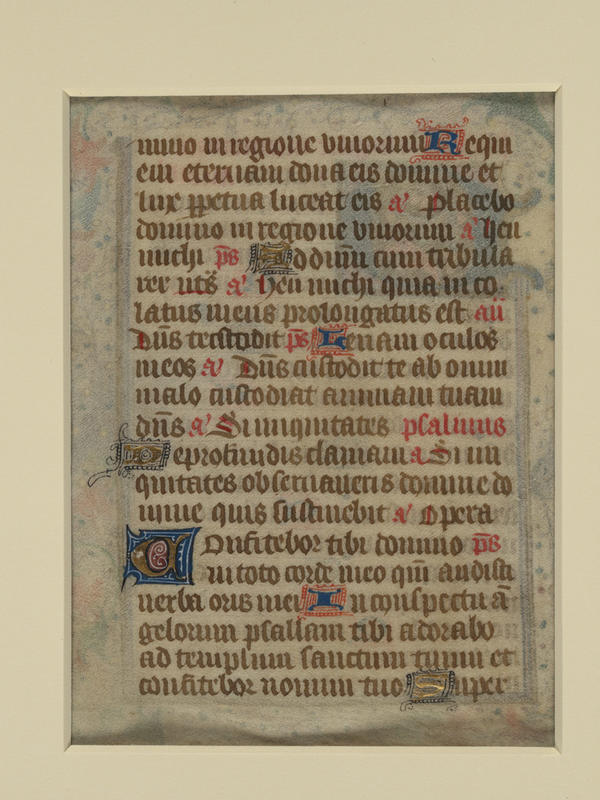 mino in regione viuorum Requi
em eternam dona eis domine et
lux ꝑpetua luceat eis a' Placebo
domino in regione viuorum a' heu
michi ps Ad dium cum tribula
rer uts a' Heu michi quia in co
latus meus prolongatus est añ
Dūs custodit ps Leuam oculos
meos a' Dūs custodit te ab omni
malo custodiat animam tuam
dns a' Si iniquitates psalmus
De profundis clamaui a Si ini
quitates obseruaueris domine do
mine quis sustinebit a' Opera
Confitebor tibi domino ps
in toto corde meo qm̄ audisti
uerba oris mei In conspectu ā
gelorum psallam tibi adorabo
ad templum sanctum tuum et
confitebor nomini tuo Super